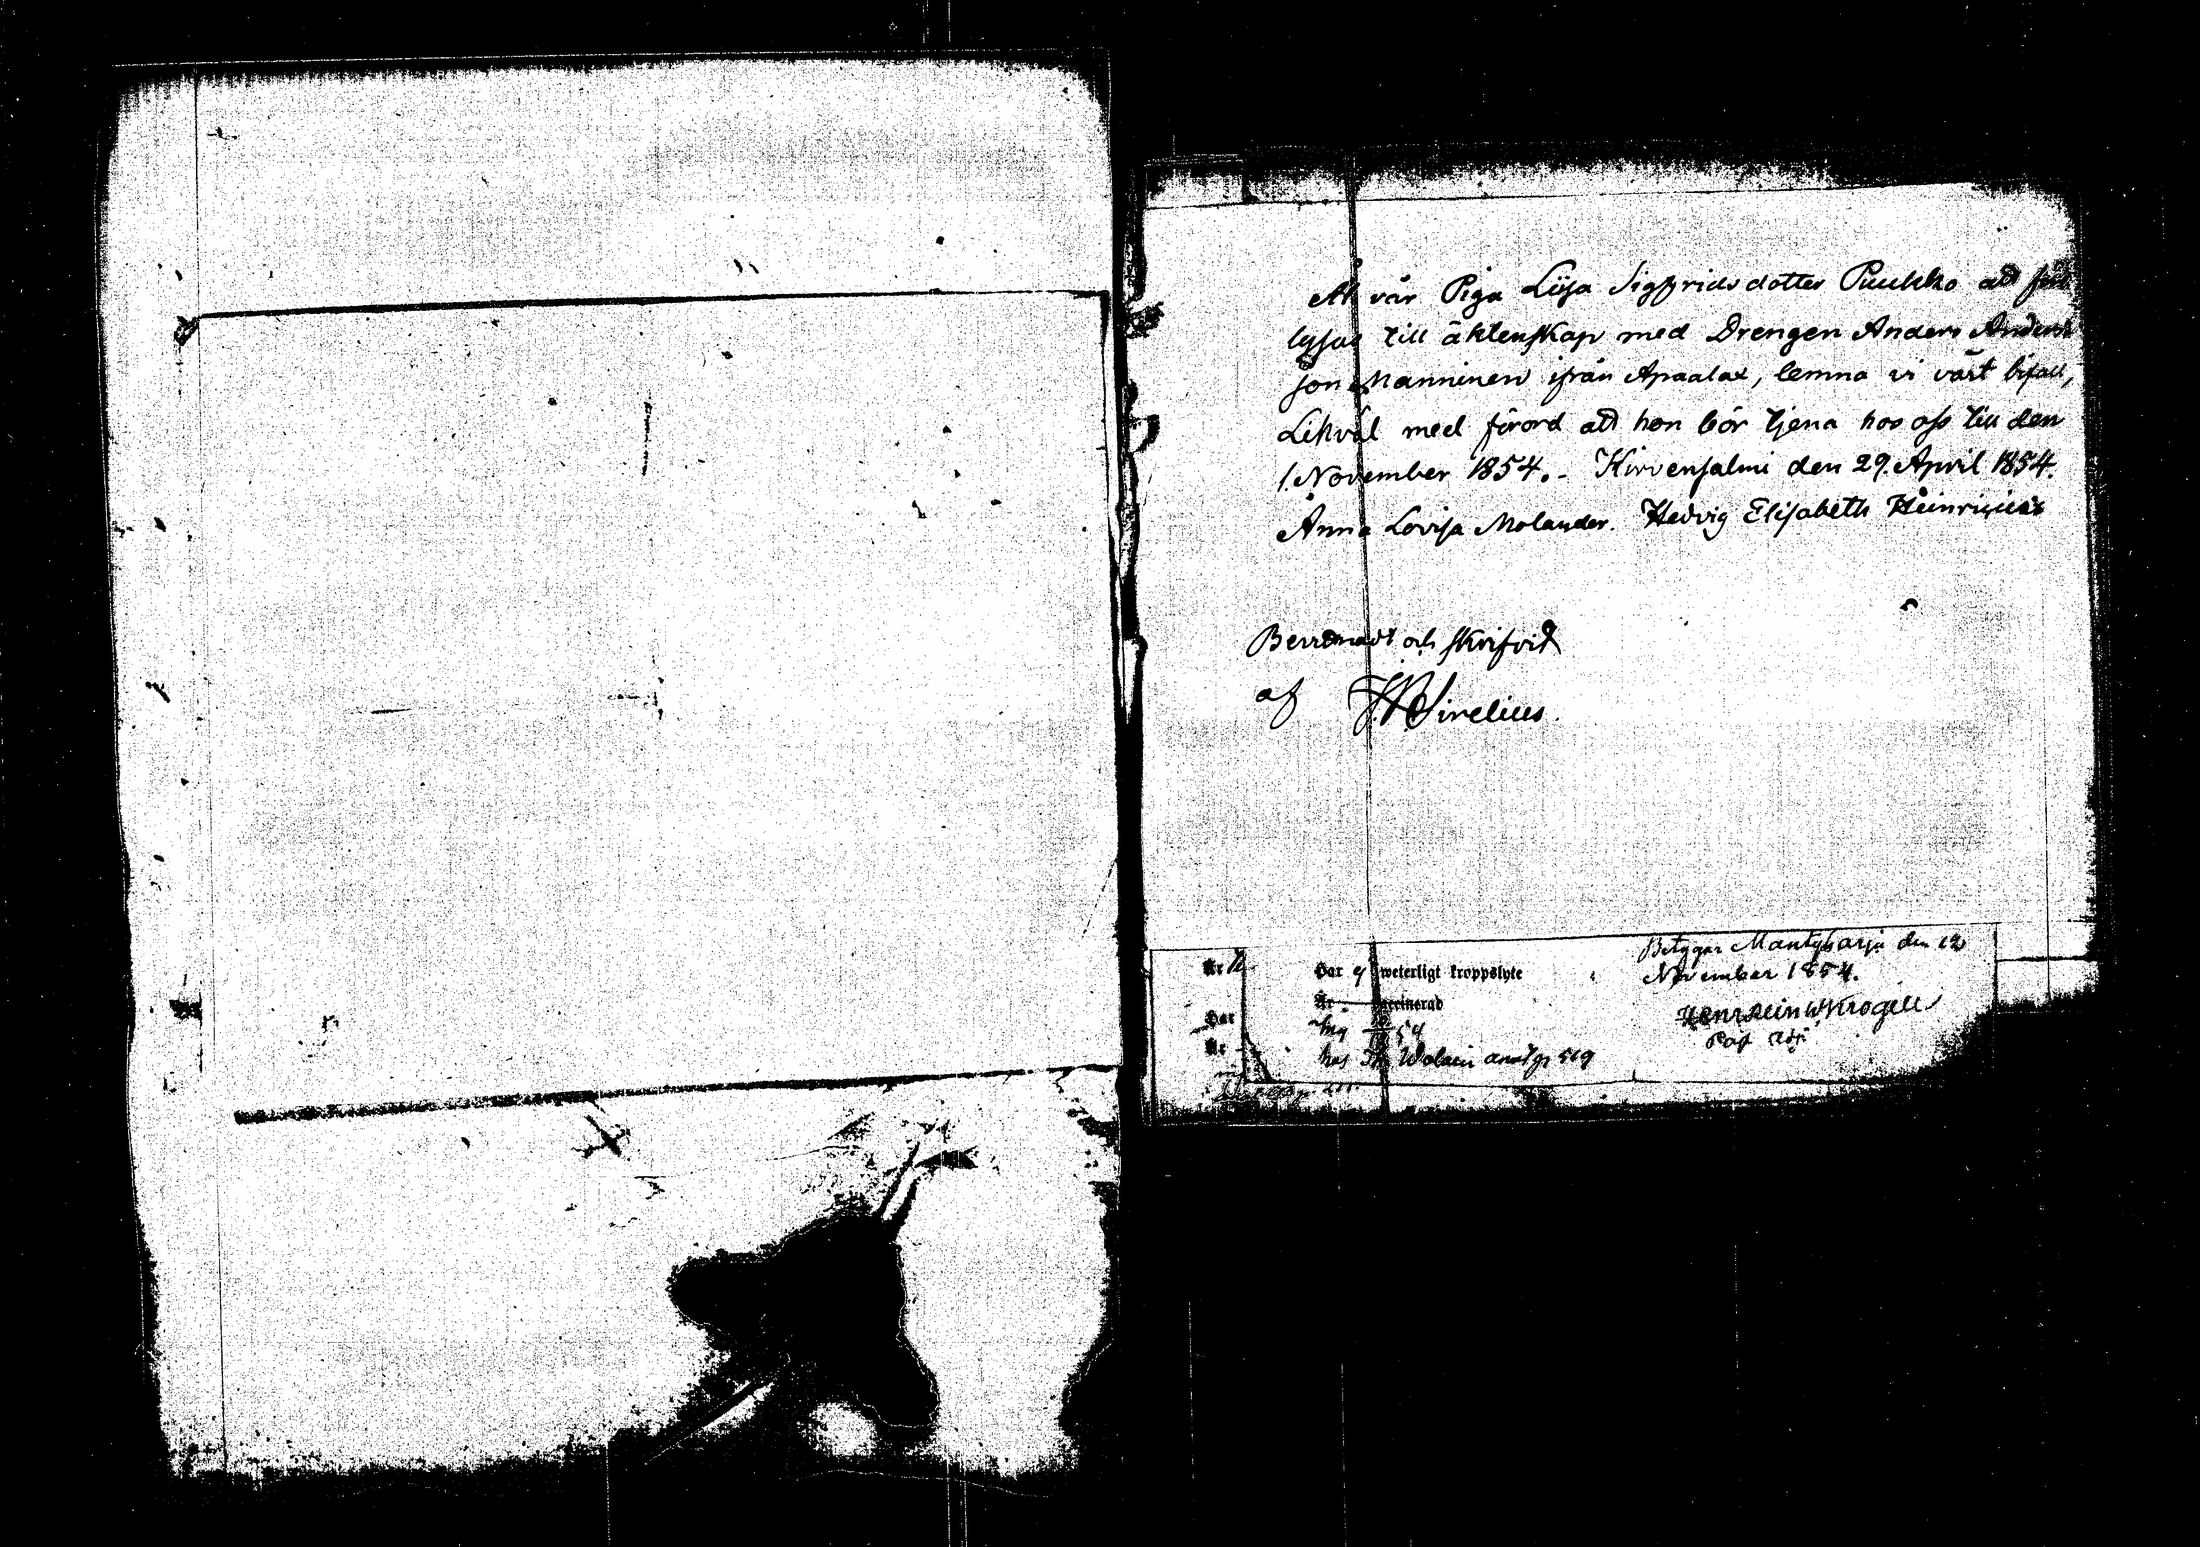 At vår Piga Liisa Sigfridsdotter Puukko att för
lysas till äktenskap med Drengen Anders Anders
son Manninen ifrån Apaalax, lemna vi vårt bifall,
Likväl med förord att hon bör tjena hos oss till den
1. November 1854. - Kirvensalmi den 29. April 1854.
Anna Lovisa Molander. Hedvig Elisabeth Heinricius
och skrifvit
af Sirelius.
Betygar Mäntyharju den 12
November 1854.
Är
Har ej weterligt kroppslyte
Är vaccinerad
Har
Är
hos